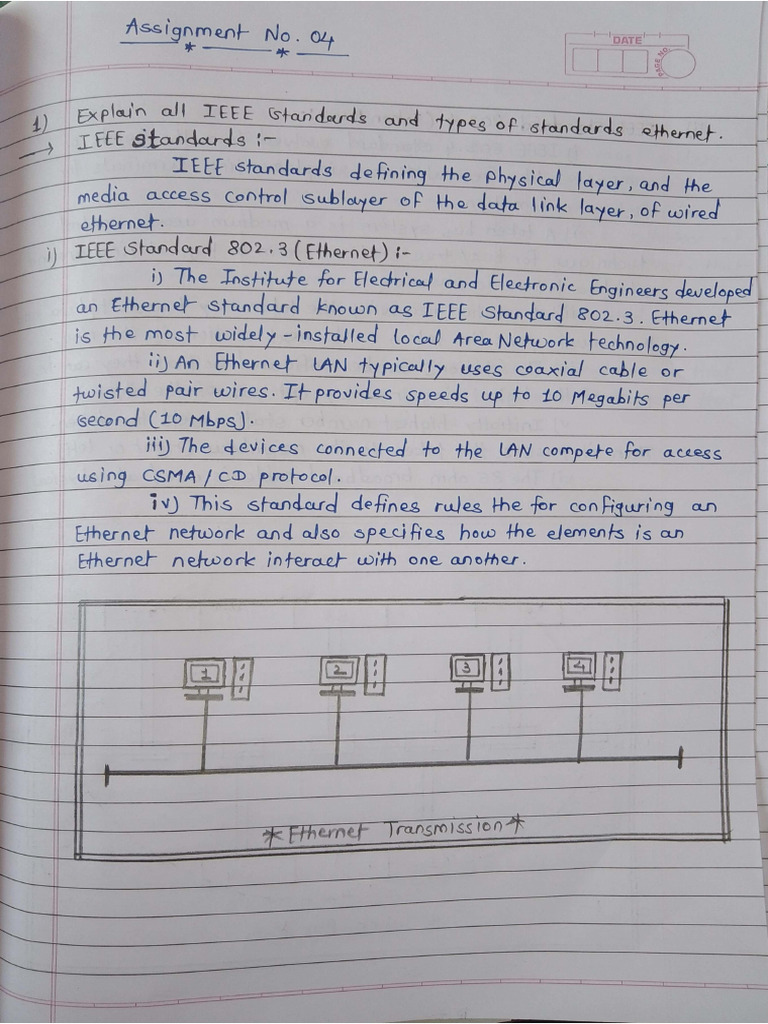 Assignment No. 04
DATE
PAGE NO.
1) Explain all IEEE standards and types of standards ethernet.
→ IEEE standards :-
IEEE standards defining the physical layer, and the
media access control sublayer of the data link layer, of wired
ethernet.
i) IEEE Standard 802.3 (Ethernet) :-
i) The Institute for Electrical and Electronic Engineers developed
an Ethernet standard known as IEEE Standard 802.3. Ethernet
is the most widely-installed local Area Network technology.
ii) An Ethernet LAN typically uses coaxial cable or
twisted pair wires. It provides speeds up to 10 Megabits per
second (10 Mbps).
iii) The devices connected to the LAN compete for access
using CSMA / CD protocol.
iv) This standard defines rules the for configuring an
Ethernet network and also specifies how the elements is an
Ethernet network interact with one another.
1 2 3 4
* Ethernet Transmission *